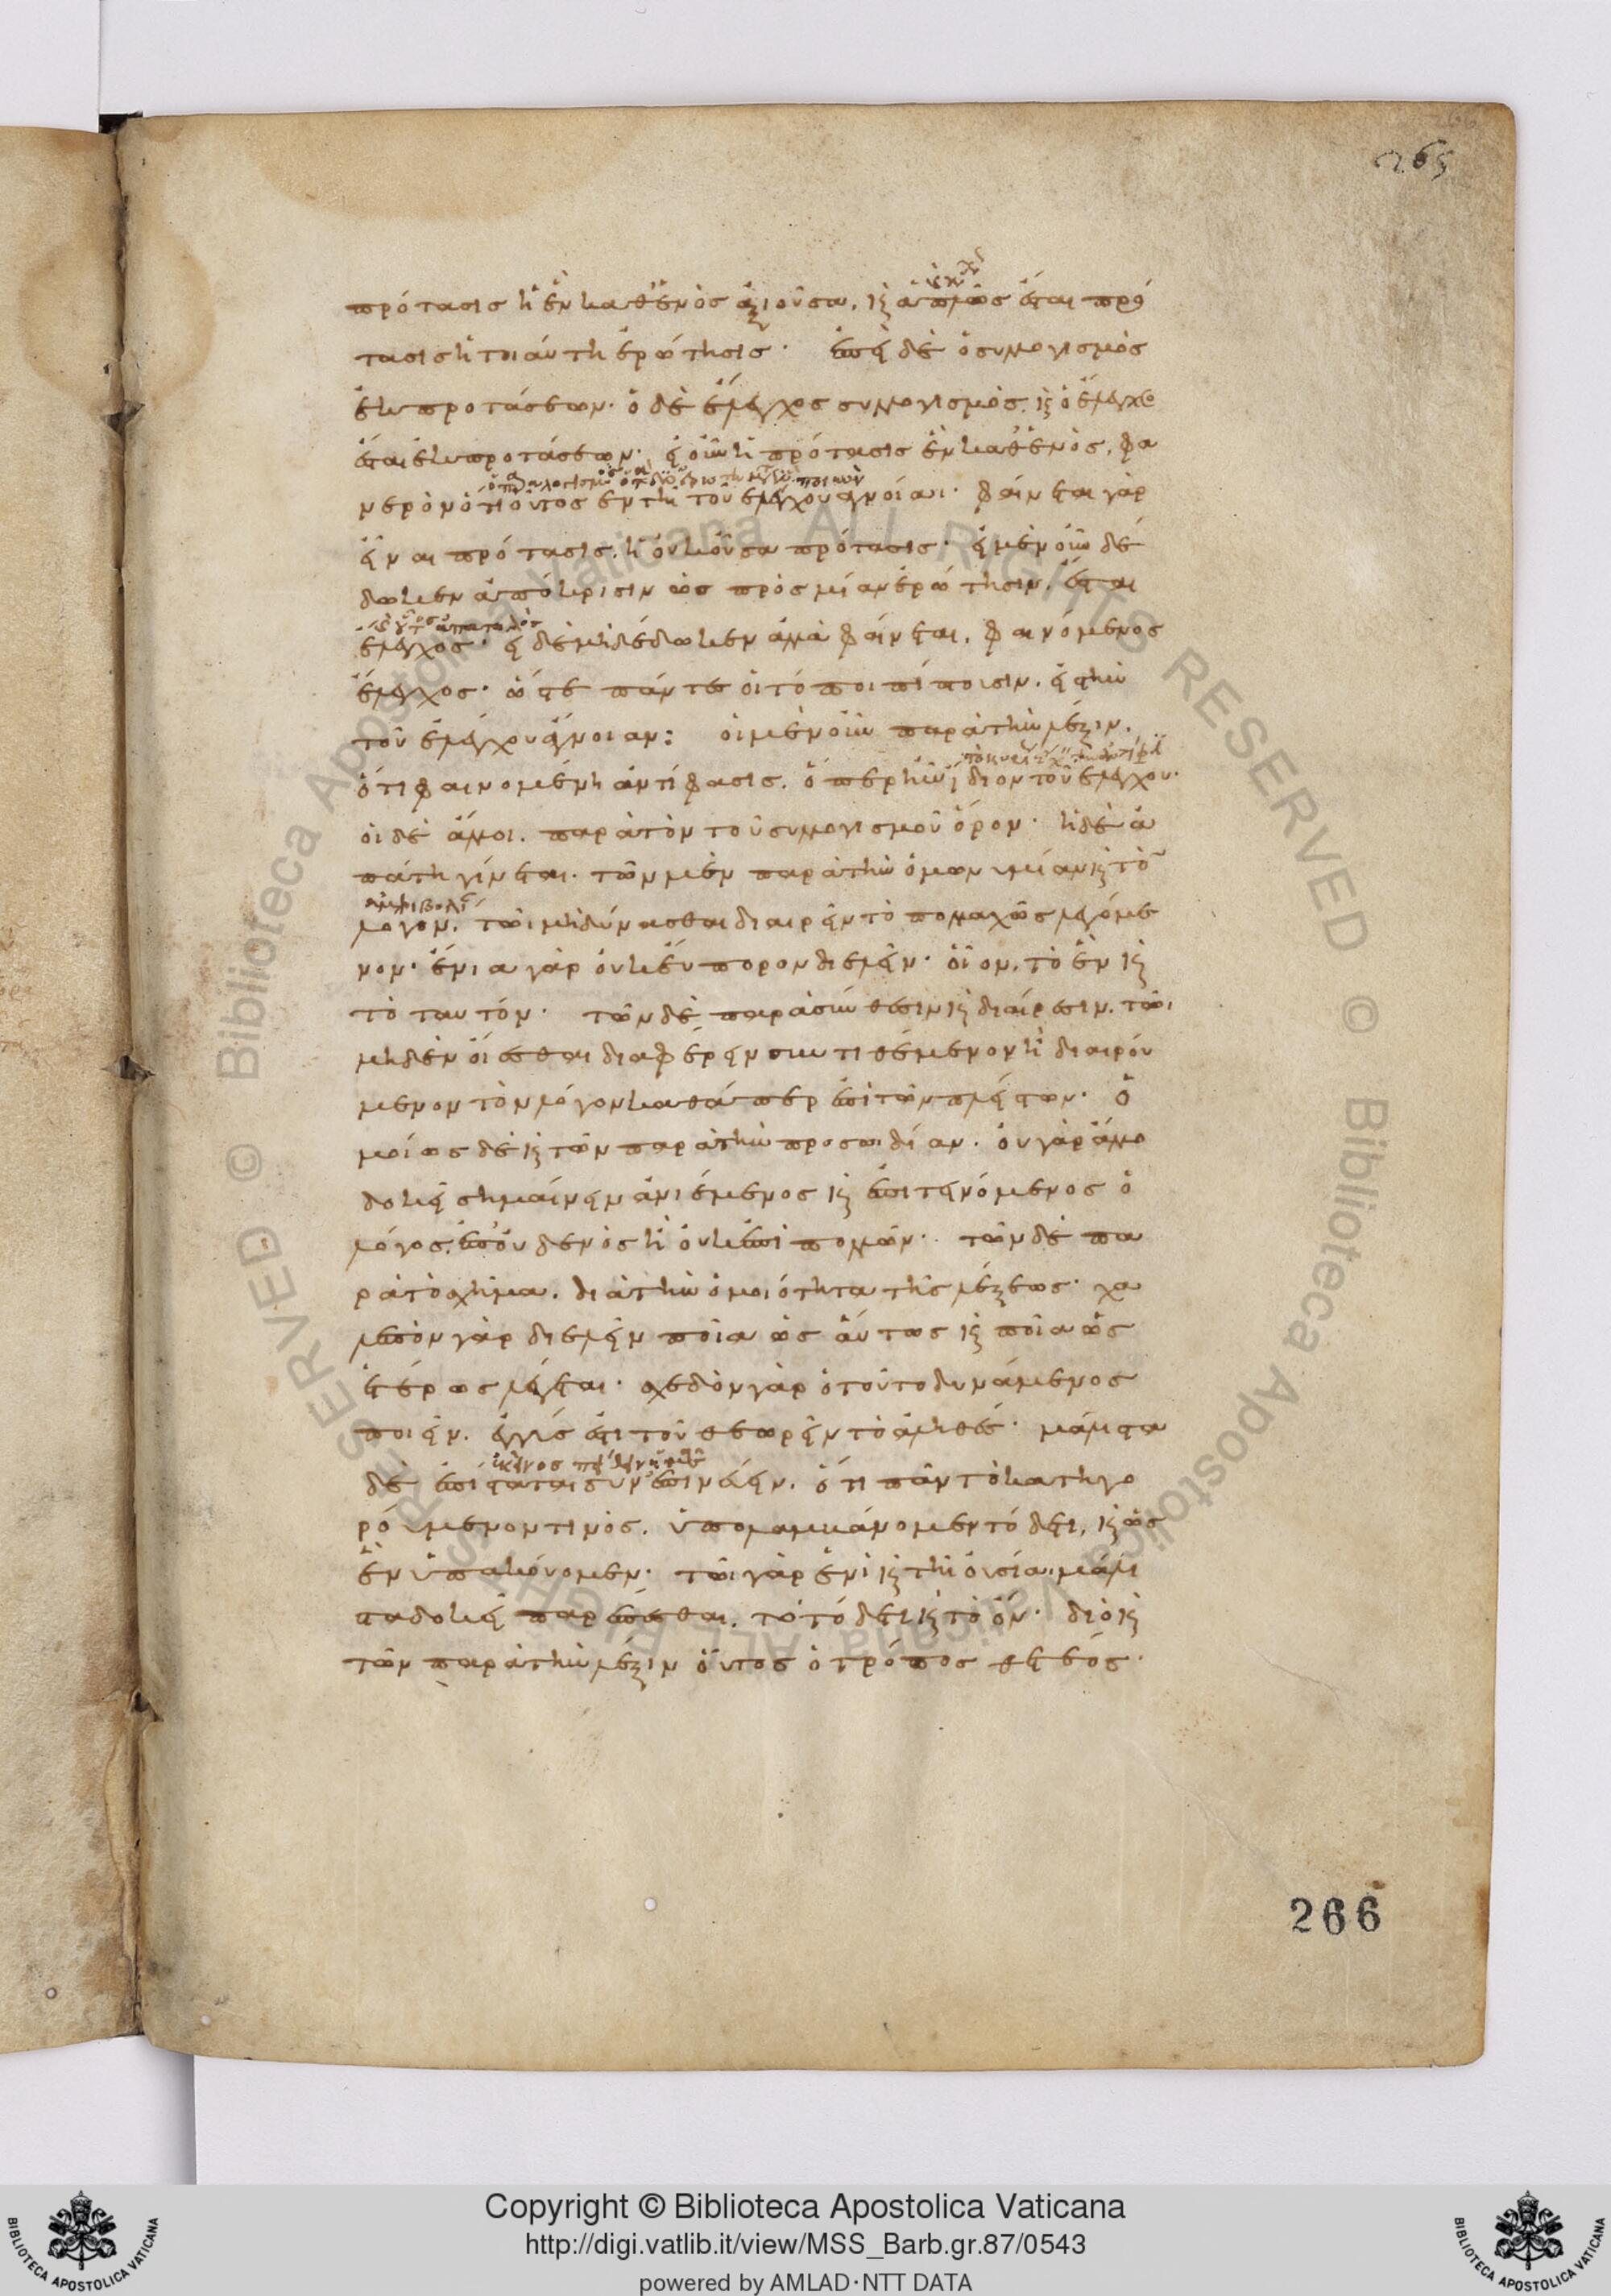 265
πρότασις ἡ ἓν καθ' ἑνὸς ἀξιοῦσα. καὶ ἁπλῶς ἔσται πρό
τασις ἡ τοιαύτη ἐρώτησις. ἐπεὶ δὲ ὁ συλλογισμὸς
ἐκ προτάσεων. ὁ δὲ ἔλεγχος συλλογισμός. καὶ ὁ ἔλεγχος
ἔσται ἐκ προτάσεων. εἰ οὖν ἡ πρότασις ἓν καθ' ἑνὸς, φα
νερὸν ὅτι οὗτος ἐν τῆ τοῦ ἐλέγχου ἀγνοίαι. φαίνεται γὰρ
εἶναι πρότασις, ἡ οὐκ οὖσα πρότασις. εἰ μὲν οὖν δέ
δωκεν ἀπόκρισιν ὡς πρὸς μίαν ἐρώτησιν. ἔσται
ἔλεγχος. εἰ δὲ μὴ δέδωκεν ἀλλὰ φαίνεται, φαινόμενος
ἔλεγχος. ὥστε πάντες οἱ τόποι πίπτουσιν. εἰς τὴν
τοῦ ἐλέγχου ἄγνοιαν: οἱ μὲν οὖν παρὰ τὴν λέξιν.
ὅτι φαινομένη ἀντίφασις. ὅπερ ἦν ἴδιον τοῦ ἐλέγχου.
οἱ δὲ ἄλλοι. παρὰ τὸν τοῦ συλλογισμοῦ ὅρον. ἡ δὲ ἀ
πάτη γίνεται. τῶν μὲν παρὰ τὴν ὁμωνυμίαν καὶ τὸν
λόγον. τῶι μὴ δύνασθαι διαιρεῖν τὸ πολλαχῶς λεγόμε
νον. ἔνια γὰρ οὐκ εὔπορον διελεῖν. οἷον. τὸ ἓν καὶ
τὸ ταυτόν. τῶν δὲ παρὰ σύνθεσιν καὶ διαίρεσιν. τῶι
μηδὲν οἴεσθαι διαφέρειν συντιθέμενον ἢ διαιρού
μενον τὸν λόγον καθάπερ ἐπὶ τῶν πλείστων. ὁ
μοίως δὲ καὶ τῶν παρὰ τὴν προσωιδίαν. οὐ γὰρ ἄλλο
δοκεῖ σημαίνειν ἀνιέμενος καὶ ἐπιτεινόμενος ὁ
λόγος. ἐπ' οὐδενὸς ἢ οὐκ ἐπὶ πολλῶν. τῶν δὲ πα
ρὰ τὸ σχῆμα. διὰ τὴν ὁμοιότητα τῆς λέξεως. χα
λεπὸν γὰρ διελεῖν ποῖα ὡσαύτως καὶ ποῖα ὡς
ἑτέρως λέγεται. σχεδὸν γὰρ ὁ τοῦτο δυνάμενος
ποιεῖν. ἐγγύς ἐστι τοῦ θεωρεῖν τὸ ἀληθές. μάλιστα
δὲ ἐπίσταται συνεπινεύειν. ὅτι πᾶν τὸ κατηγο
ρούμενον τινός. ὑπολαμβάνομεν τόδε τι, καὶ ὡς
ἓν ὑπακούομεν. τῶι γὰρ ἑνὶ καὶ τῆ οὐσίαι μάλι
στα δοκεῖ παρέπεσθαι. τὸ τόδε τι καὶ τὸ ὄν. διὸ καὶ
τῶν παρὰ τὴν λέξιν οὗτος ὁ τρόπος θετέος.
266
Copyright © Biblioteca Apostolica Vaticana
http://digi.vatlib.it/view/MSS_Barb.gr.87/0543
powered by AMLAD·NTT DATA